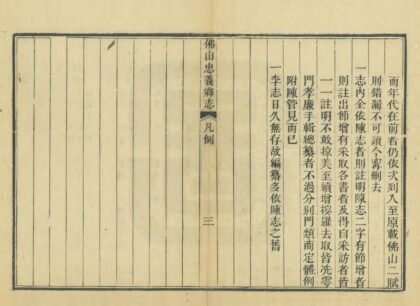 而年代在前者仍依次列入至原載佛山二賦
則錯漏不可讀今寧刪去
一志內全依陳志者則註明陳志二字有節增者
則註出節增有采取各書者及得自采訪者皆
一一註明不敢掠美至續增搜羅去取皆冼雩
門孝廉手輯總纂者不過分別門類商定體例
附陳管見而已
一李志日久無存故編纂多依陳志之舊
佛山忠義鄉志
凡例
三